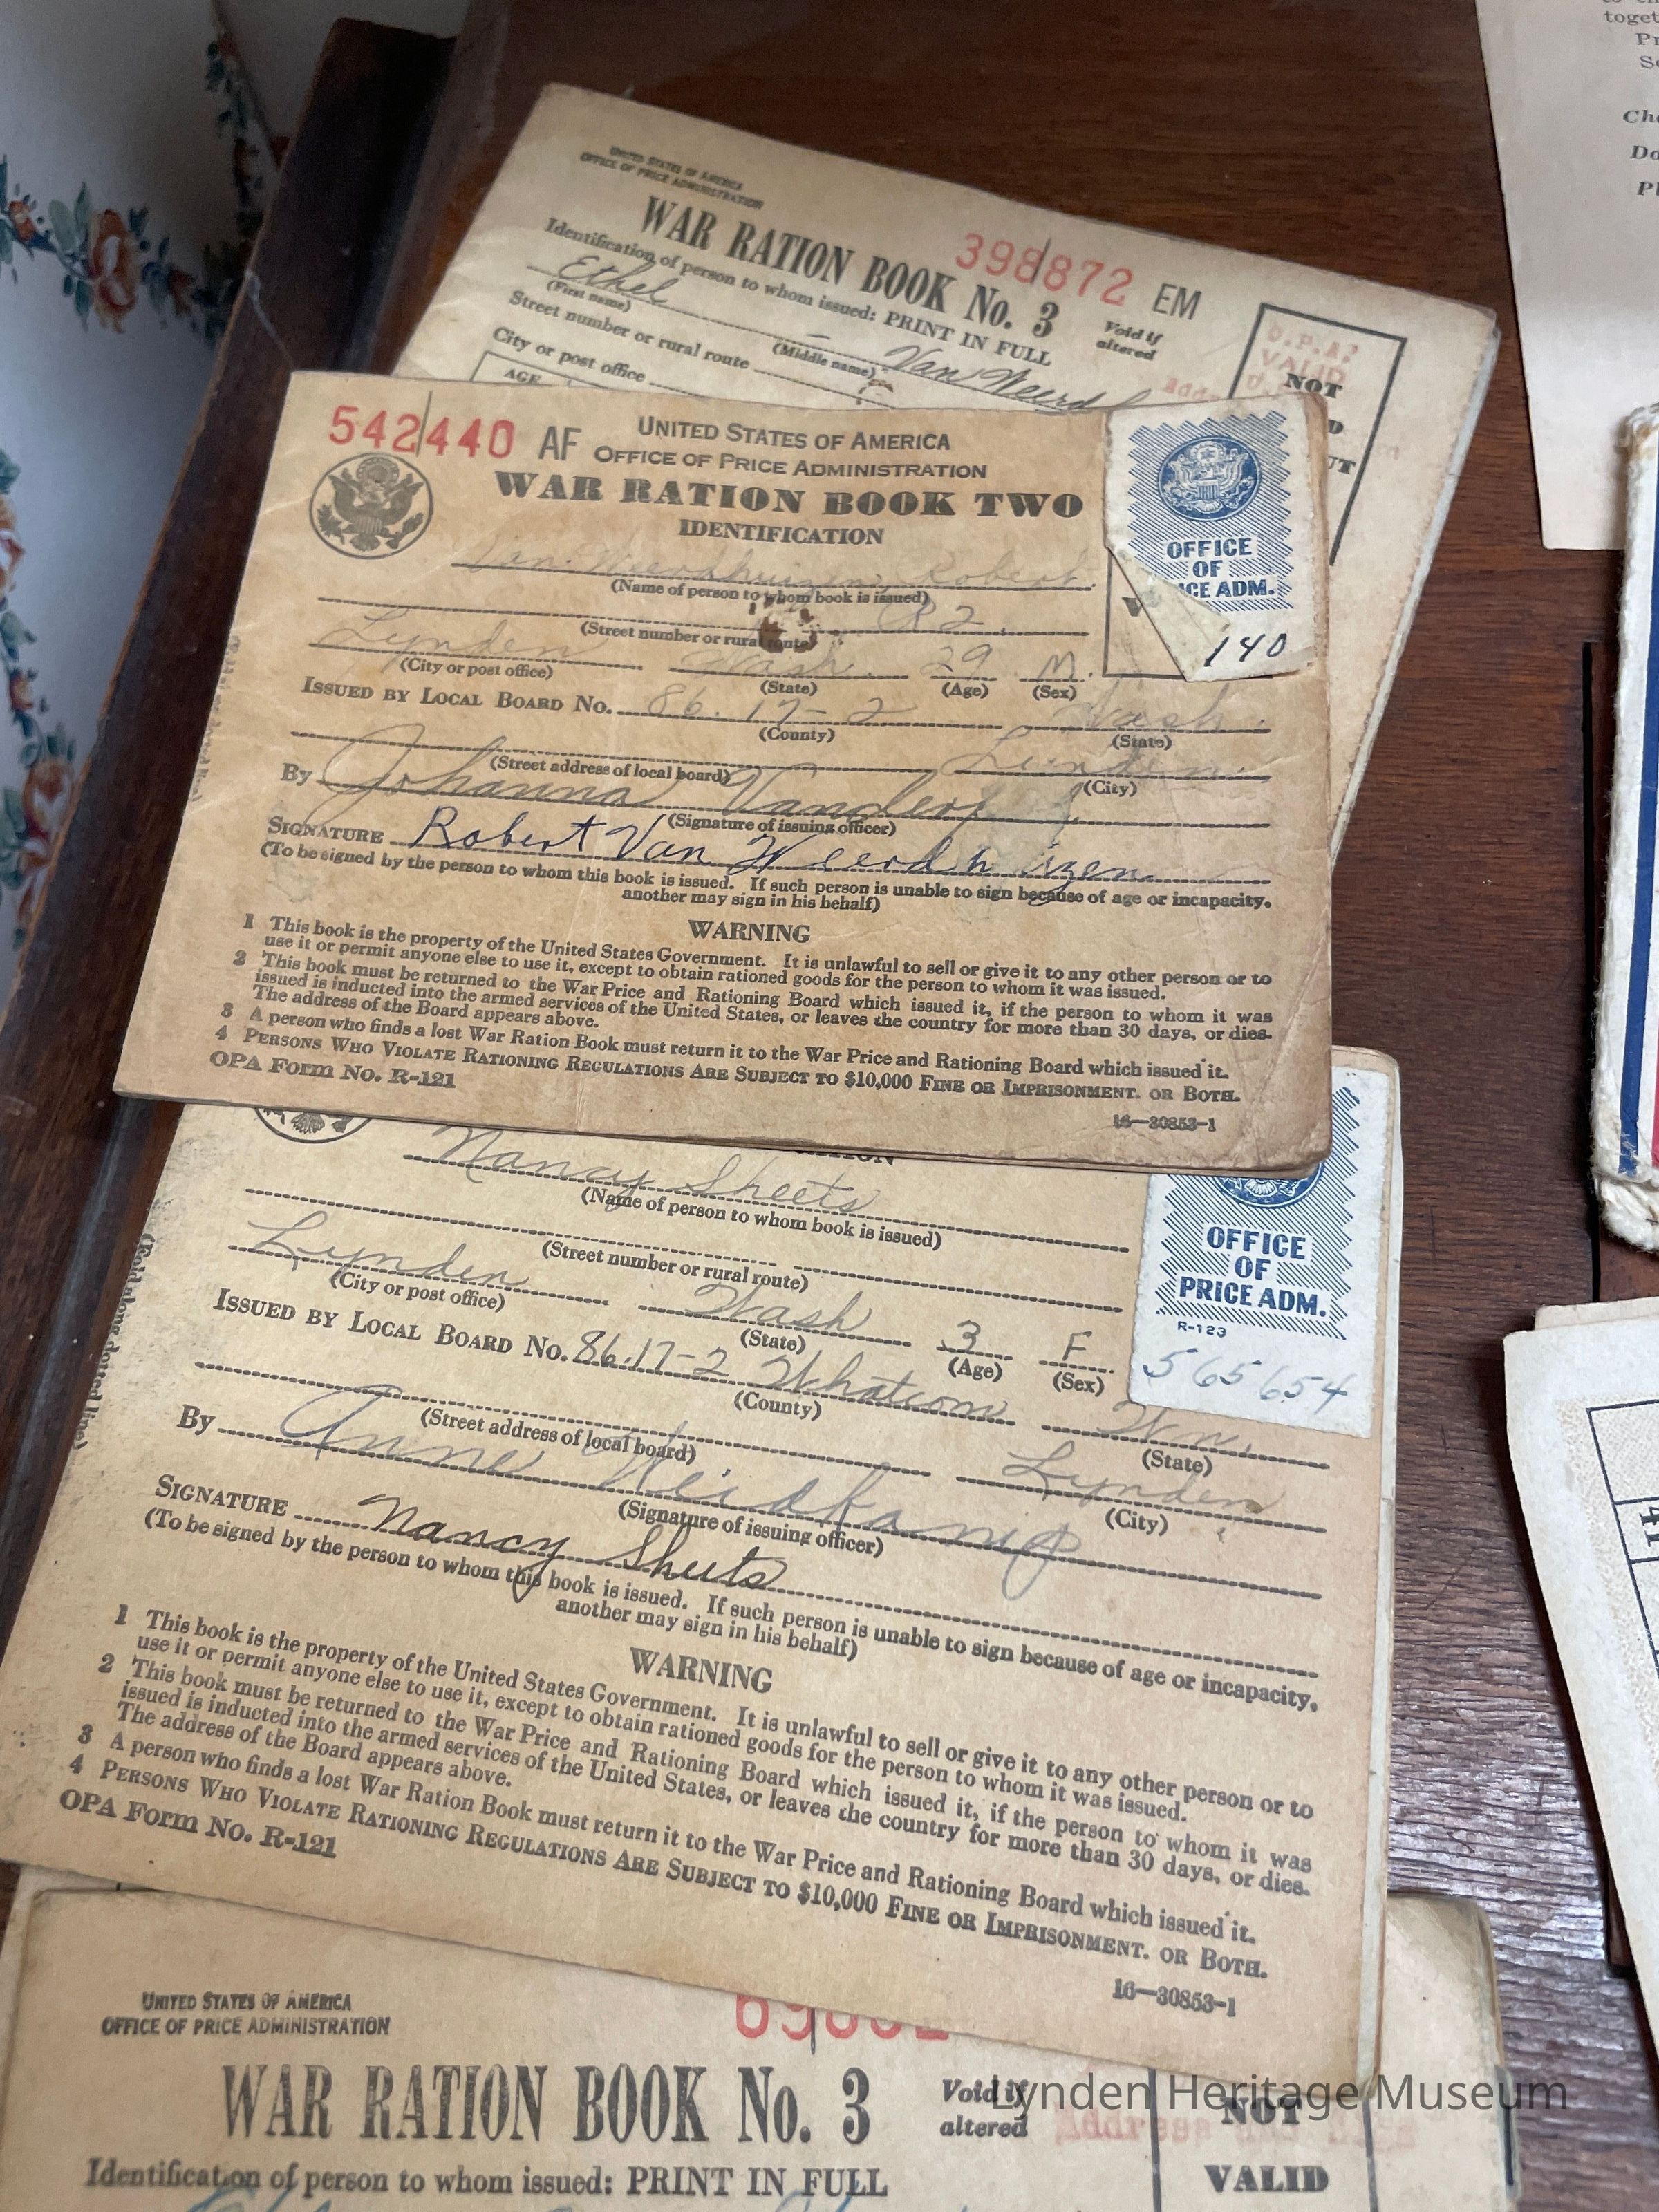 UNITED STATES OF AMERICA
OFFICE OF PRICE ADMINISTRATION
398872 EM
WAR RATION BOOK No. 3
Void if
altered
Identification of person to whom issued: PRINT IN FULL
Ethel Van
(First name) (Middle name)
Street number or rural route
City or post office
AGE
O.P.A.
VALID
NOT
542440 AF
UNITED STATES OF AMERICA
OFFICE OF PRICE ADMINISTRATION
WAR RATION BOOK TWO
IDENTIFICATION
OFFICE
OF
ICE ADM.
140
Van Weerdhuizen Robert
(Name of person to whom book is issued)
R 2
(Street number or rural route)
Lynden Wash. 29 M.
(City or post office) (State) (Age) (Sex)
ISSUED BY LOCAL BOARD No. 86. 17-2 Wash.
(County) (State)
Lynden.
(Street address of local board) (City)
By Johanna
(Signature of issuing officer)
SIGNATURE Robert Van Weerdhuizen
(To be signed by the person to whom this book is issued. If such person is unable to sign because of age or incapacity, another may sign in his behalf)
WARNING
1 This book is the property of the United States Government. It is unlawful to sell or give it to any other person or to
use it or permit anyone else to use it, except to obtain rationed goods for the person to whom it was issued.
2 This book must be returned to the War Price and Rationing Board which issued it, if the person to whom it was
issued is inducted into the armed services of the United States, or leaves the country for more than 30 days, or dies.
The address of the Board appears above.
3 A person who finds a lost War Ration Book must return it to the War Price and Rationing Board which issued it.
4 PERSONS WHO VIOLATE RATIONING REGULATIONS ARE SUBJECT TO $10,000 FINE OR IMPRISONMENT, OR BOTH.
OPA Form No. R-121
16—30853-1
Nancy Sheets
(Name of person to whom book is issued)
(Street number or rural route)
OFFICE
OF
PRICE ADM.
R-123
565654
Lynden Wash 3 F
(City or post office) (State) (Age) (Sex)
ISSUED BY LOCAL BOARD No. 86.17-2 Whatcom Wn.
(County) (State)
Lynden
(Street address of local board) (City)
By Anne
(Signature of issuing officer)
SIGNATURE Nancy Sheets
(To be signed by the person to whom this book is issued. If such person is unable to sign because of age or incapacity,
another may sign in his behalf)
WARNING
1 This book is the property of the United States Government. It is unlawful to sell or give it to any other person or to
use it or permit anyone else to use it, except to obtain rationed goods for the person to whom it was issued.
2 This book must be returned to the War Price and Rationing Board which issued it, if the person to whom it was
issued is inducted into the armed services of the United States, or leaves the country for more than 30 days, or dies.
The address of the Board appears above.
3 A person who finds a lost War Ration Book must return it to the War Price and Rationing Board which issued it.
4 PERSONS WHO VIOLATE RATIONING REGULATIONS ARE SUBJECT TO $10,000 FINE OR IMPRISONMENT, OR BOTH.
OPA Form No. R-121
16—30853-1
UNITED STATES OF AMERICA
OFFICE OF PRICE ADMINISTRATION
WAR RATION BOOK No. 3
Void if
altered
Identification of person to whom issued: PRINT IN FULL
NOT
VALID
Lynden Heritage Museum